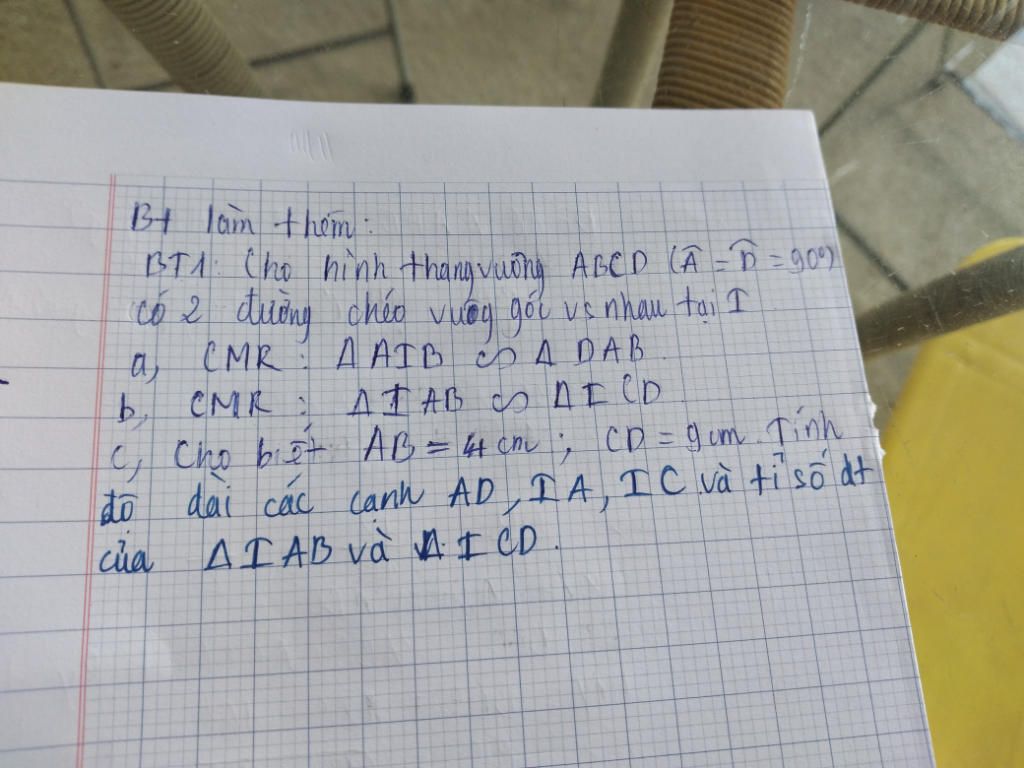 Bt làm thêm:
BT1: Cho hình thang vuông ABCD (Â = D̂ = 90°)
có 2 đường chéo vuôg góc vs nhau tại I
a, CMR : Δ AIB ∽ Δ DAB.
b, CMR : Δ IAB ∽ Δ ICD
c, Cho biết AB = 4 cm ; CD = 9 cm. Tính
độ dài các cạnh AD, IA, IC và tỉ số dt
của Δ IAB và Δ ICD.